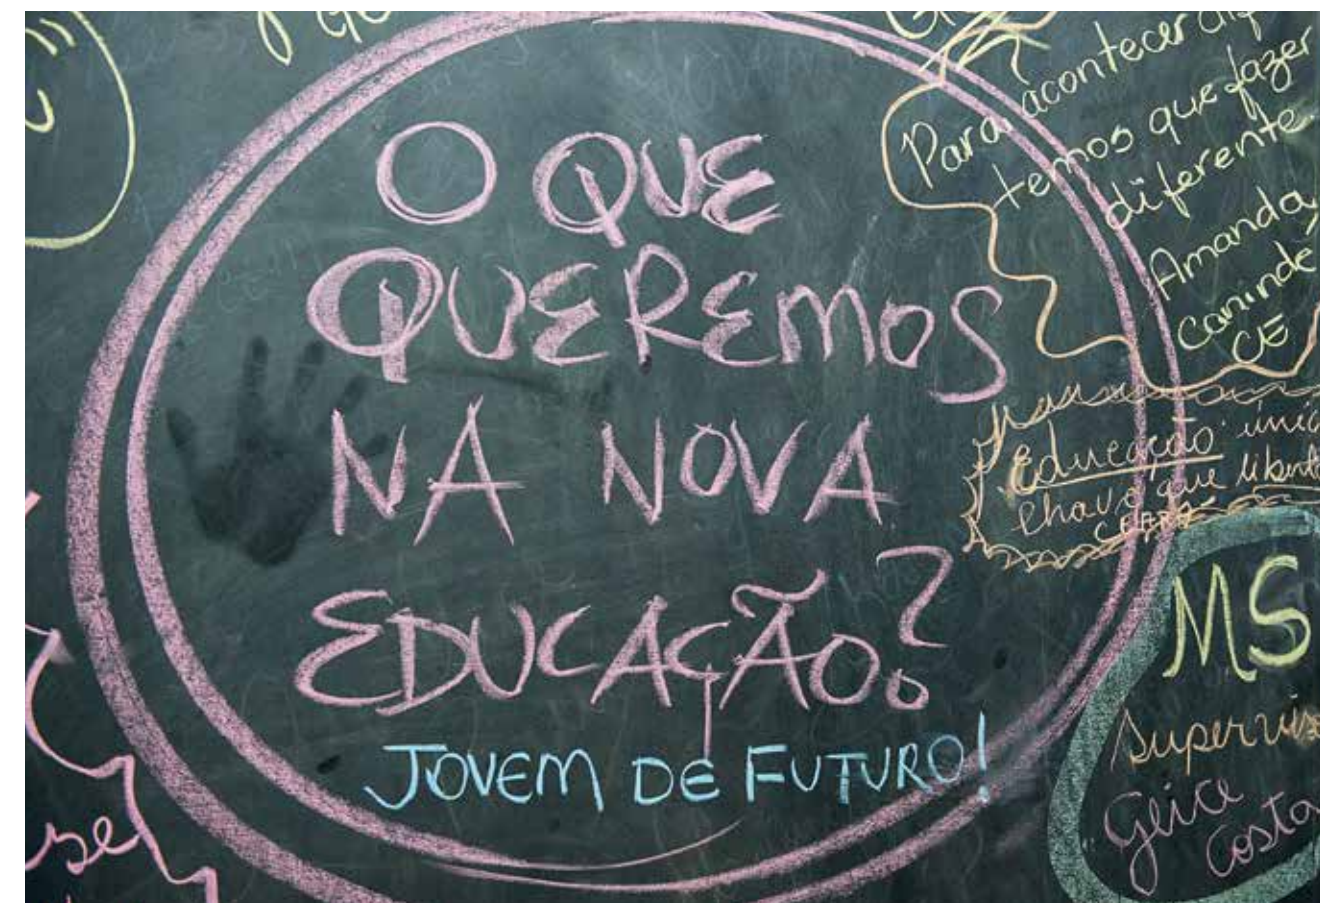 O QUE
QUEREMOS
NA NOVA
EDUCAÇÃO?
JOVEM DE FUTURO!
Para acontecer
temos que fazer
diferente.
Amanda,
Canindé
CE
Educação
chave que
CEARÁ
MS
Gleice
Costa
se